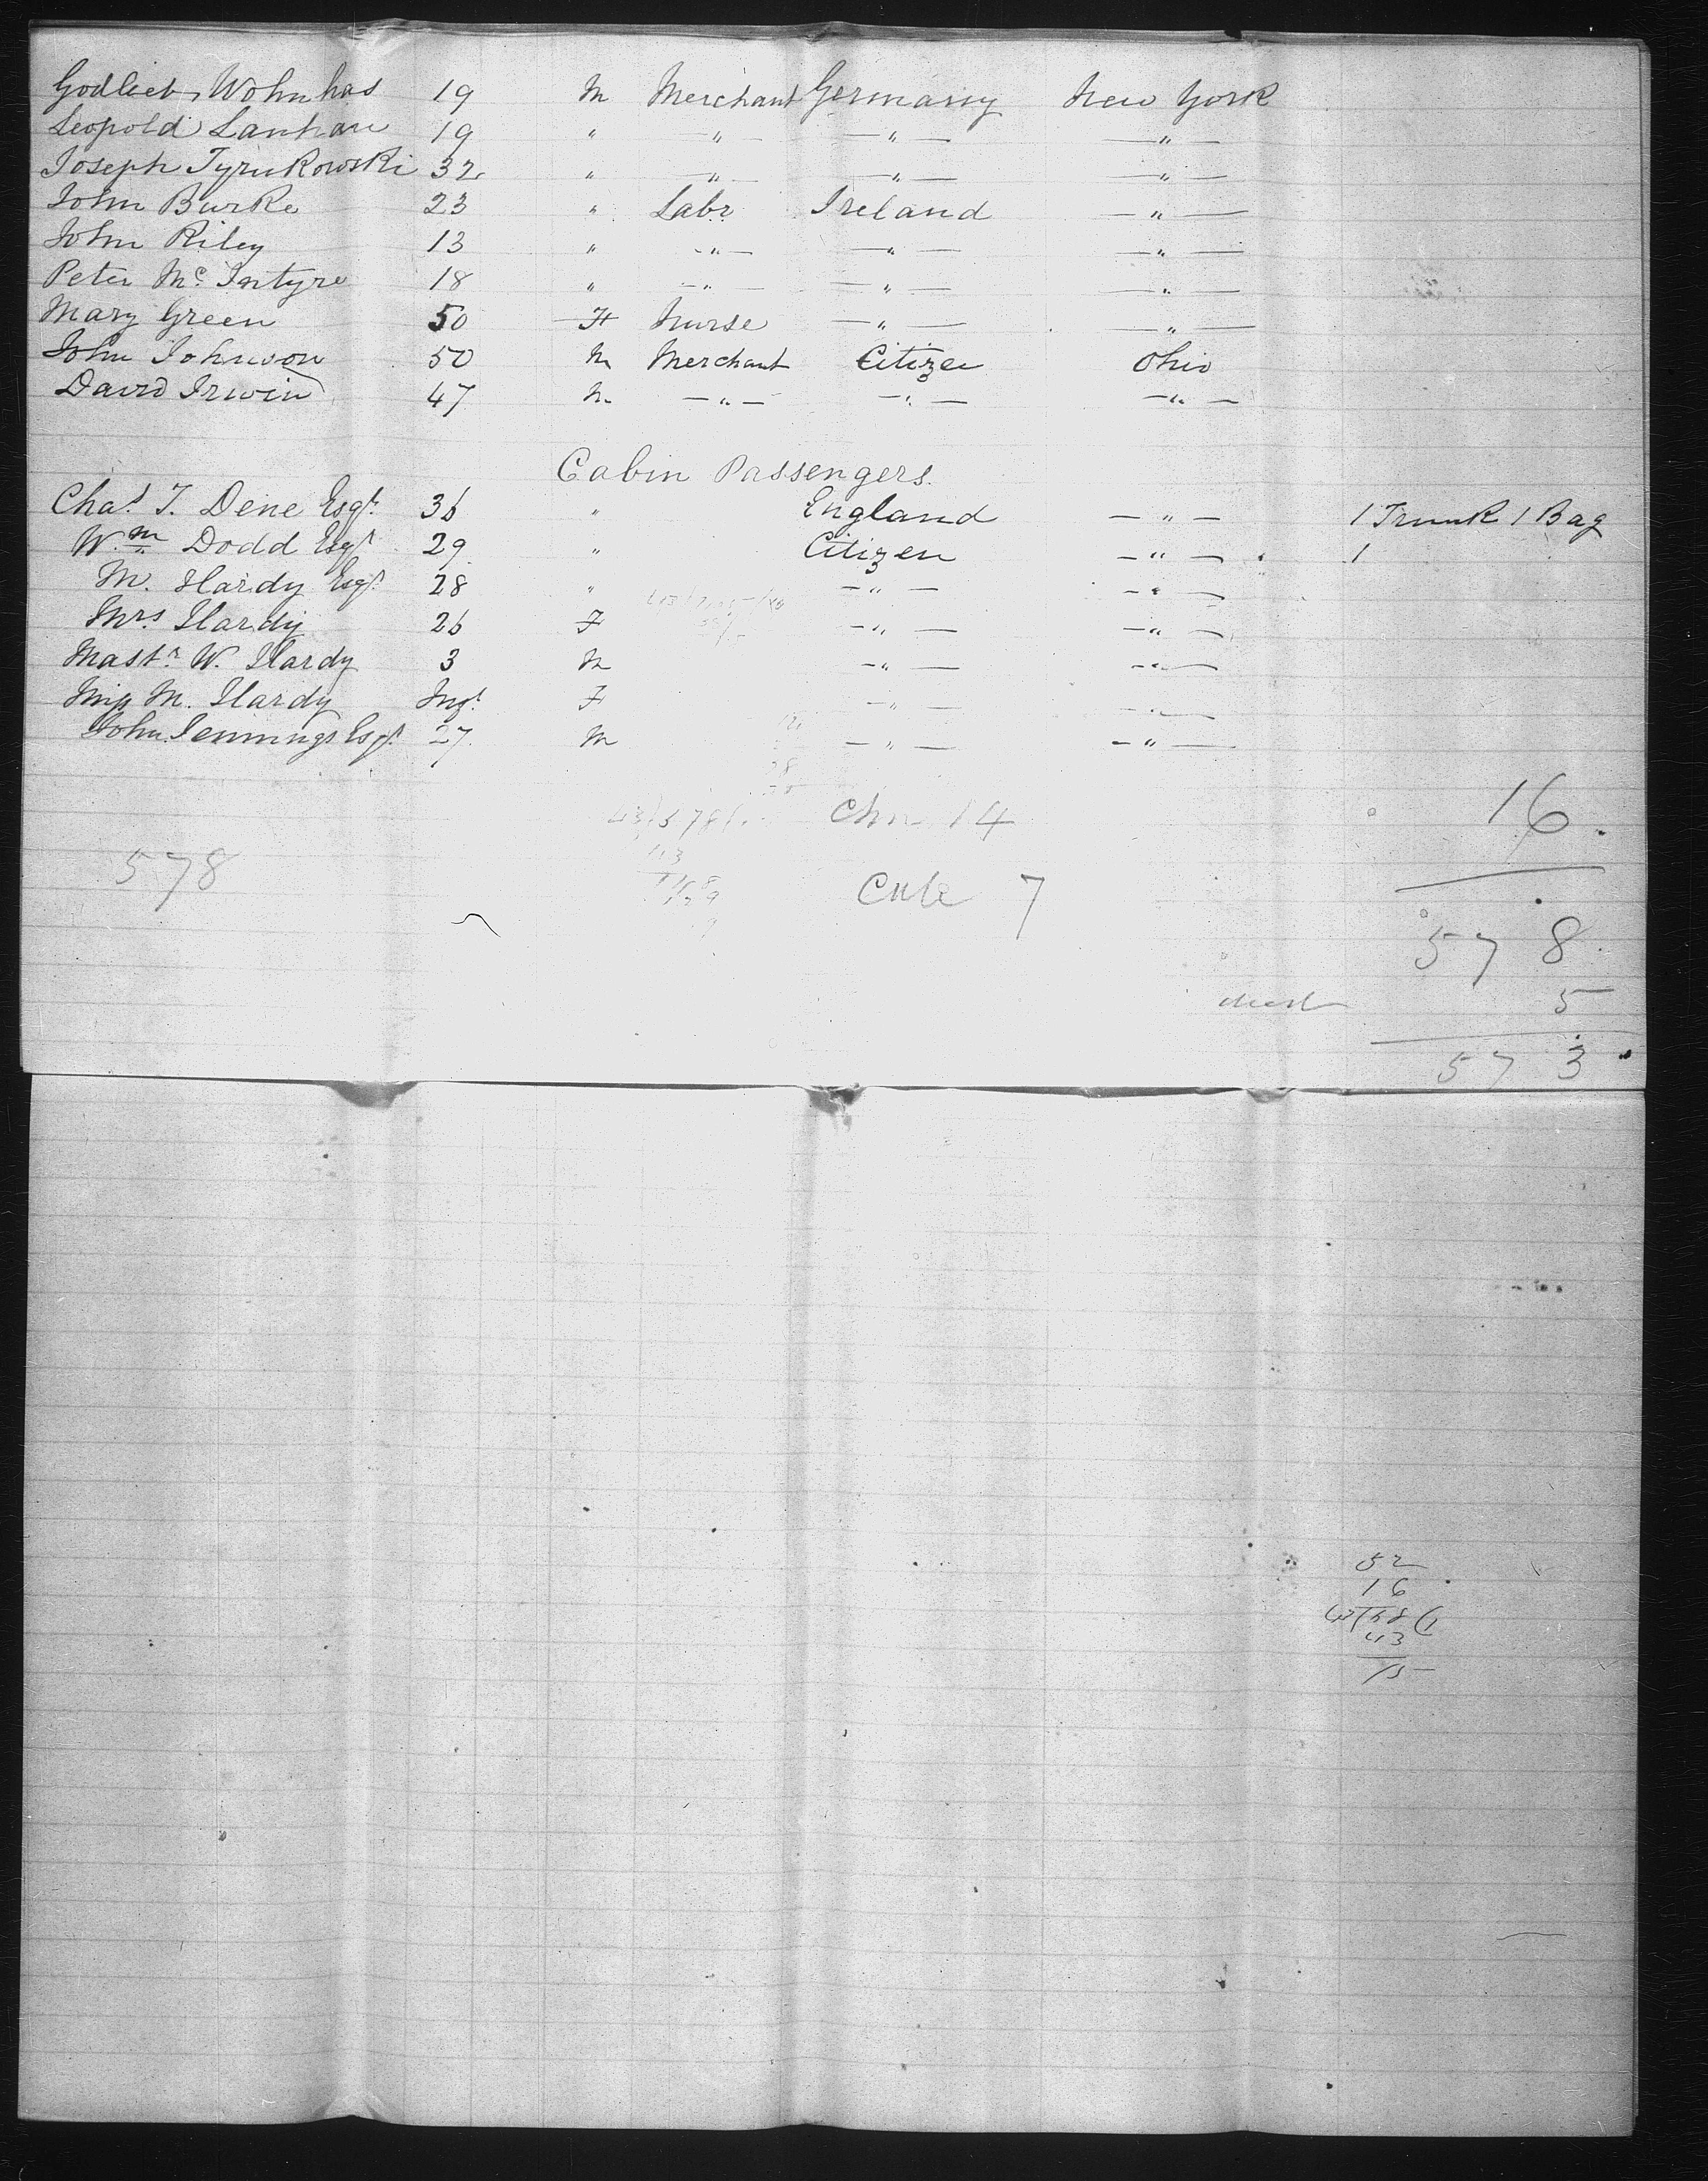 Godlieb Wohnhas 19 M Merchant Germany New York
Leopold Lanhau 19 " —"— —"— —"—
Joseph Tyrukowski 32 " —"— —"— —"—
John Burke 23 " Labr Ireland —"—
John Riley 13 " -"— —"— —"—
Peter Mc Intyre 18 " —"— —"— —"—
Mary Green 50 F Nurse —"— —"—
John Johnson 50 M Merchant Citize Ohio
David Irwin 47 M. —"— —"— —"—
Cabin Passengers.
Chas. T. Dene Esqr. 36 " England —"— 1 Trunk 1 Bag
Wm Dodd Esqr 29. " Citizen —"— 1
M. Hardy Esqr. 28 " —"— —"—
Mrs Hardy 26 F —"— —"—
Mastr W. Hardy 3 M —"— —"—
Miss M. Hardy Inft F —"— —"—
John Jennings Esqr. 27. M —"— —"—
16.
Chn 14
43)578(
578
Cule 7
578
5
573
52
16
43)68(1
43
15